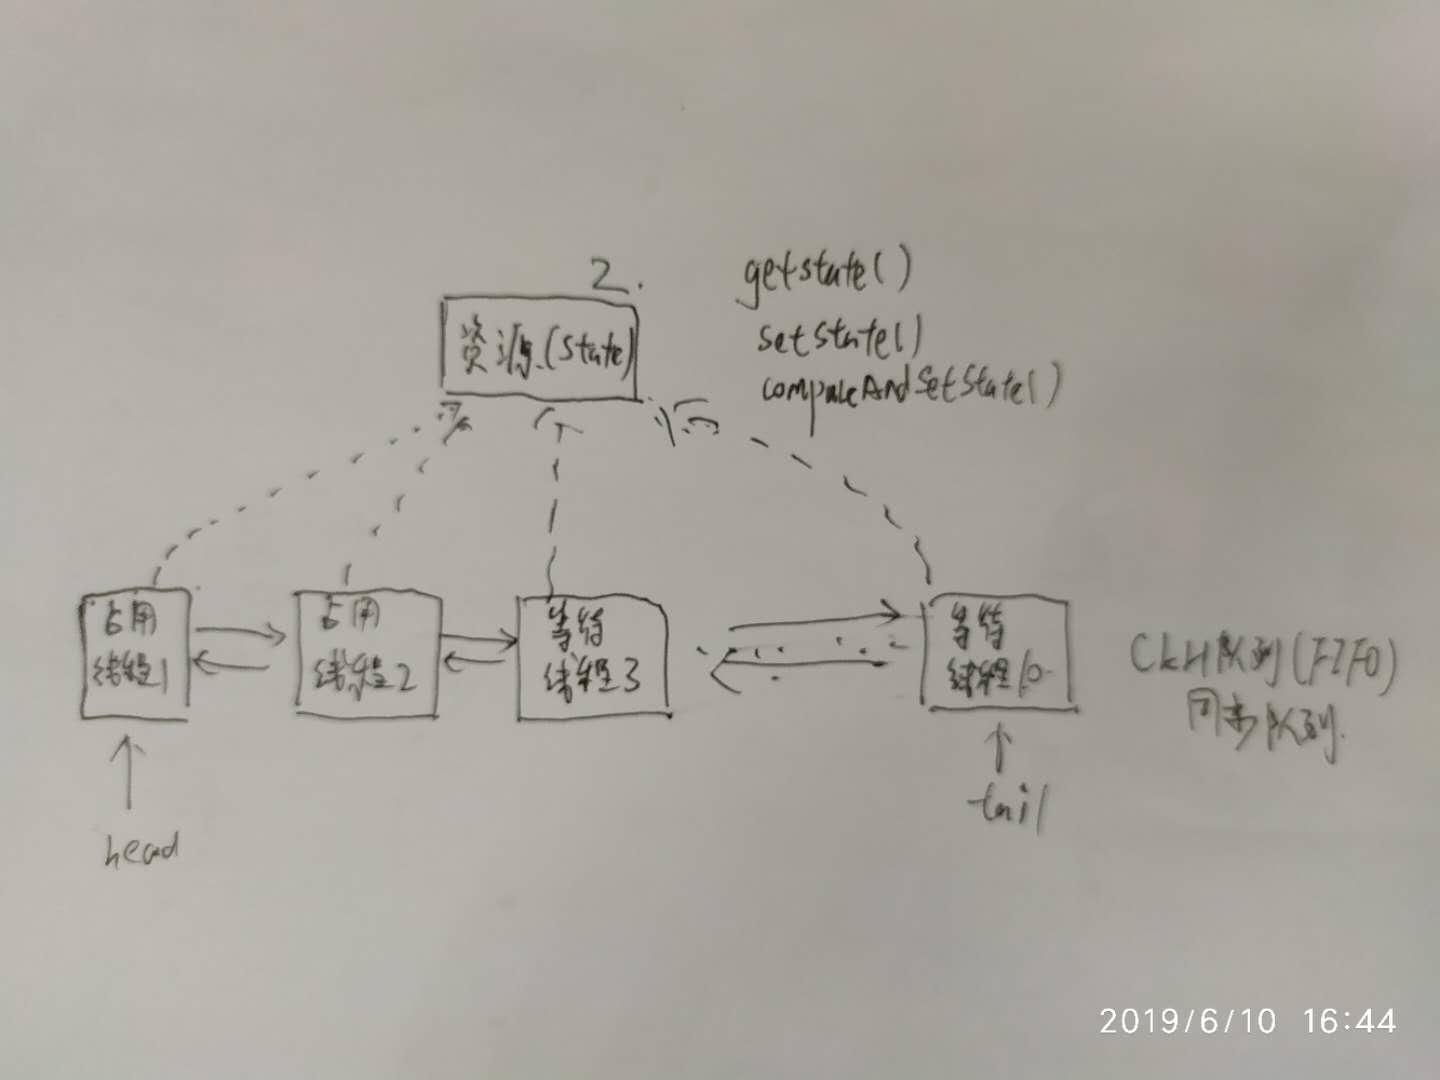 2.
资源(State)
getstate()
setstate()
compareAndSetState()
占用
线程1
占用
线程2
等待
线程3
等待
线程10
CLH队列(FIFO)
同步队列.
head
tail
2019/6/10 16:44